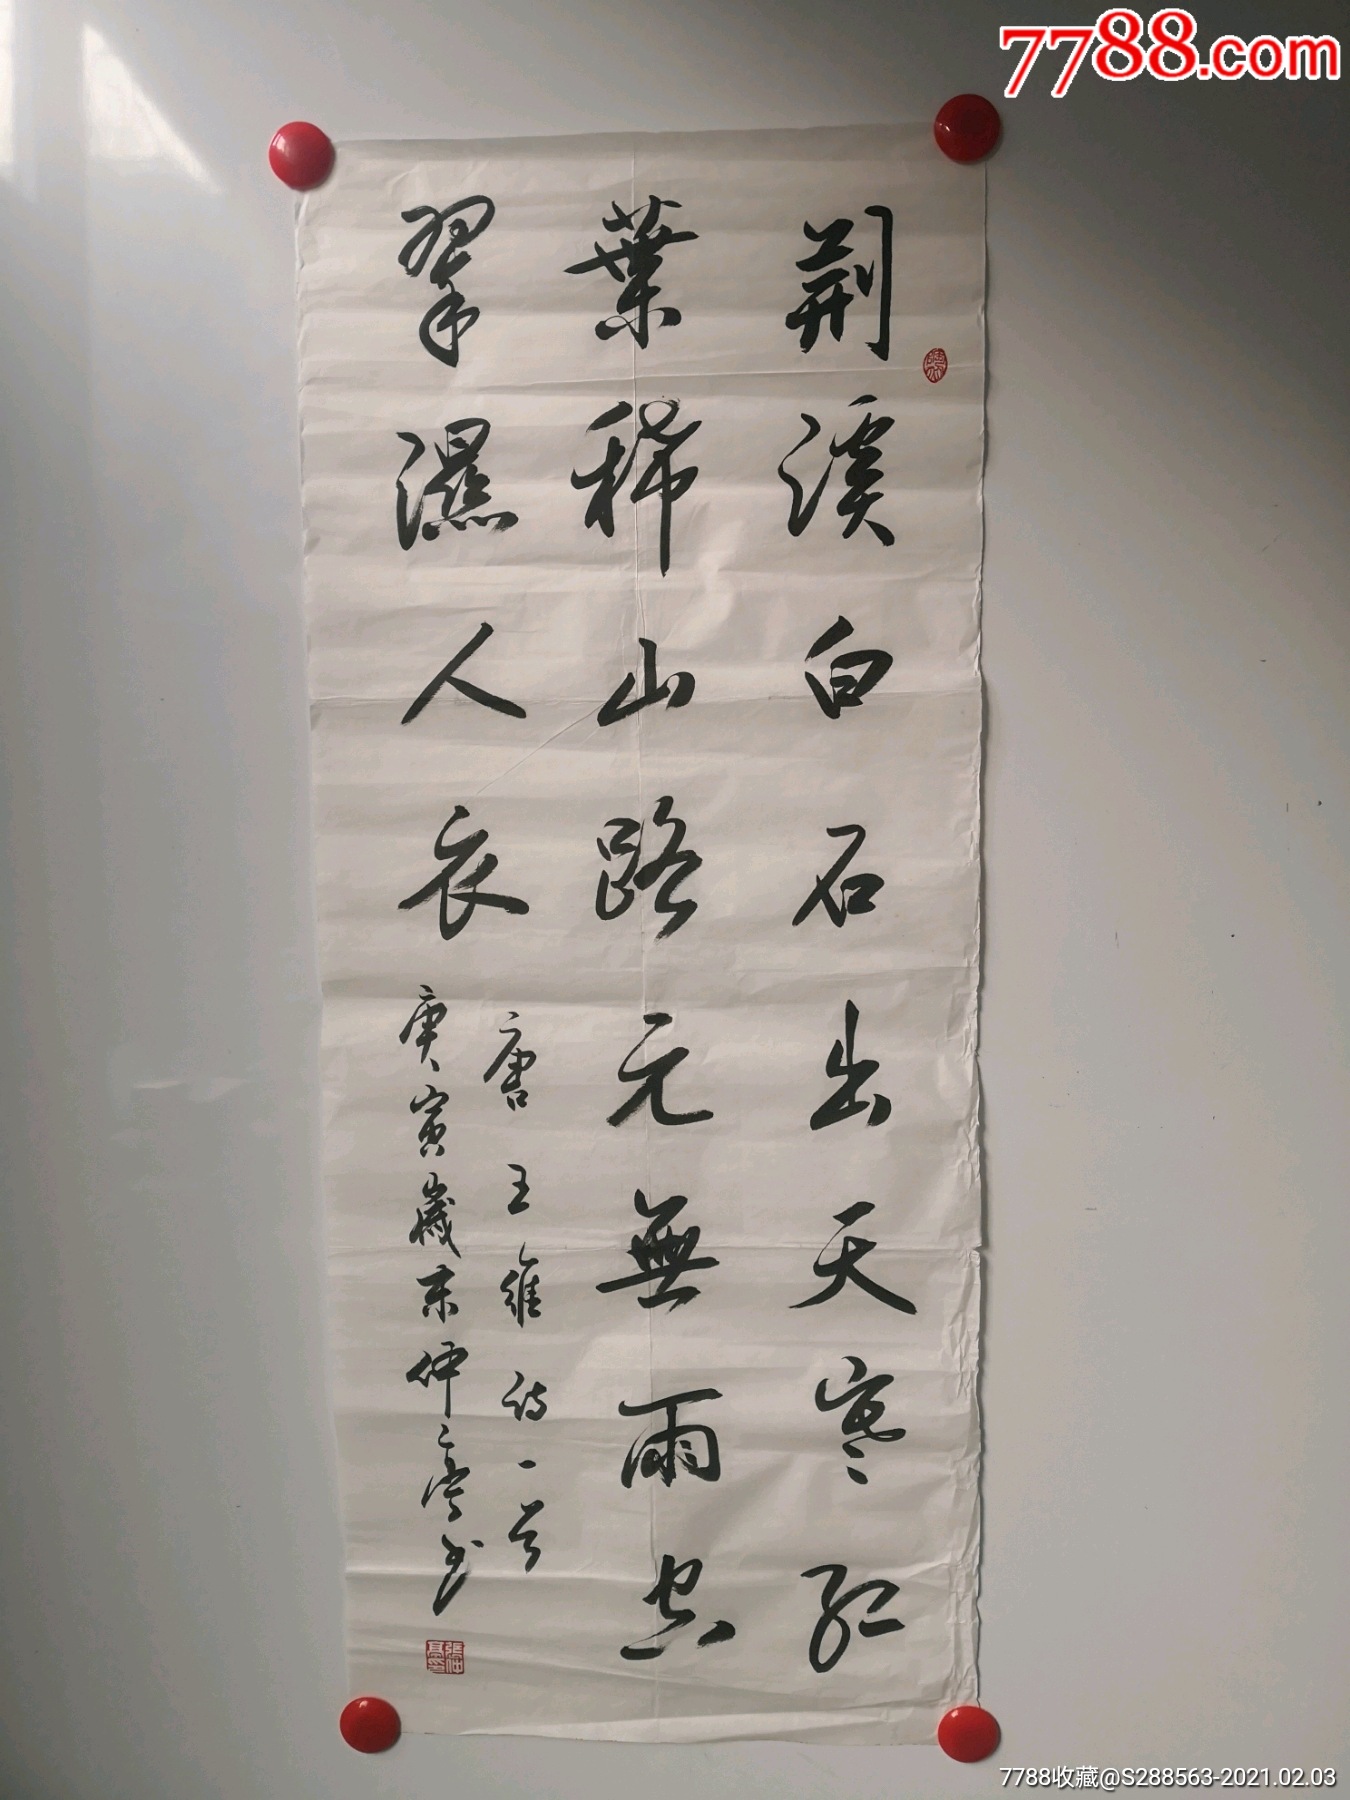 7788.com
荆溪白石出天寒紅
葉稀山路元無雨空
翠濕人衣
唐王維詩一首
庚寅歲末仲亭书
7788收藏@S288563-2021.02.03